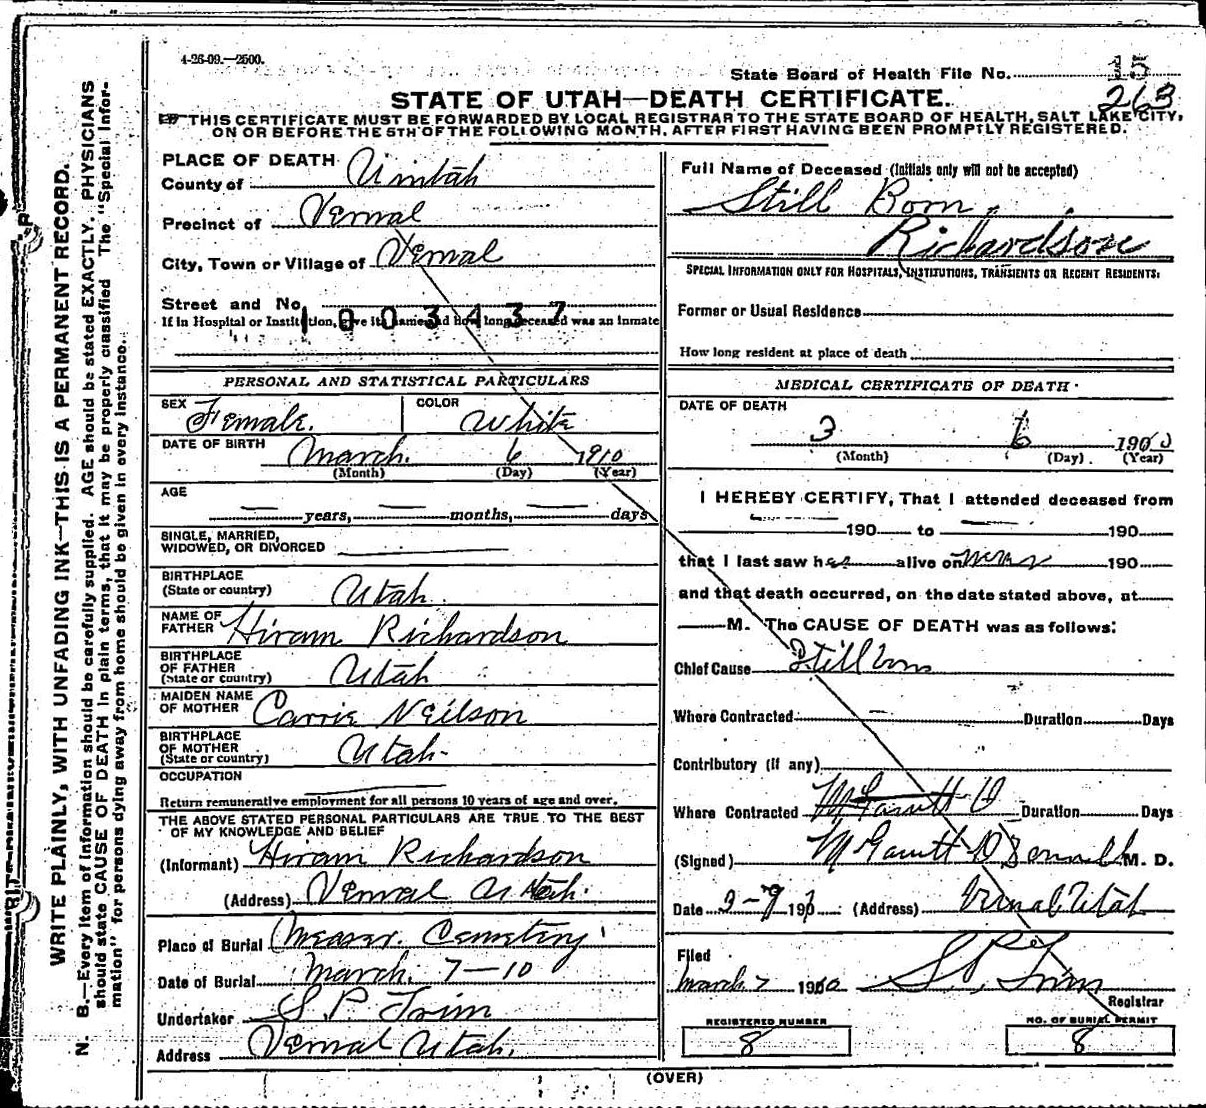 4-26-09.—2500.
State Board of Health File No. 15
263
STATE OF UTAH—DEATH CERTIFICATE.
THIS CERTIFICATE MUST BE FORWARDED BY LOCAL REGISTRAR TO THE STATE BOARD OF HEALTH, SALT LAKE CITY,
ON OR BEFORE THE 5TH OF THE FOLLOWING MONTH, AFTER FIRST HAVING BEEN PROMPTLY REGISTERED.
WRITE PLAINLY, WITH UNFADING INK—THIS IS A PERMANENT RECORD.
N. B.—Every item of information should be carefully supplied. AGE should be stated EXACTLY. PHYSICIANS
should state CAUSE OF DEATH in plain terms, that it may be properly classified The "Special Infor-
mation" for persons dying away from home should be given in every instance.
PLACE OF DEATH
County of Uintah
Precinct of Vernal
City, Town or Village of Vernal
Street and No.
1003437
If in Hospital or Institution, give its name and how long deceased was an inmate
PERSONAL AND STATISTICAL PARTICULARS
SEX Female. COLOR White
DATE OF BIRTH March. 6 1910
(Month) (Day) (Year)
AGE
years, months, days
SINGLE, MARRIED,
WIDOWED, OR DIVORCED
BIRTHPLACE
(State or country) Utah.
NAME OF
FATHER Hiram Richardson
BIRTHPLACE
OF FATHER
(State or country) Utah
MAIDEN NAME
OF MOTHER Carrie Neilson
BIRTHPLACE
OF MOTHER
(State or country) Utah-
OCCUPATION
Return remunerative employment for all persons 10 years of age and over.
THE ABOVE STATED PERSONAL PARTICULARS ARE TRUE TO THE BEST
OF MY KNOWLEDGE AND BELIEF
(Informant) Hiram Richardson
(Address) Vernal Utah.
Place of Burial Measer. Cemetery
Date of Burial March. 7-10
Undertaker S. P. Trim
Address Vernal Utah.
Full Name of Deceased (Initials only will not be accepted)
Still Born
Richardson
SPECIAL INFORMATION ONLY FOR HOSPITALS, INSTITUTIONS, TRANSIENTS OR RECENT RESIDENTS:
Former or Usual Residence
How long resident at place of death
MEDICAL CERTIFICATE OF DEATH
DATE OF DEATH
3 6 190
(Month) (Day) (Year)
I HEREBY CERTIFY, That I attended deceased from
190 to 190
that I last saw her alive on never 190
and that death occurred, on the date stated above, at
M. The CAUSE OF DEATH was as follows:
Chief Cause Still born
Where Contracted Duration Days
Contributory (if any)
Where Contracted Duration Days
(Signed) M. D.
Date 3-7 19 (Address) Vernal Utah
Filed
March 7 19 S. P. Trim
Registrar
REGISTERED NUMBER
8
NO. OF BURIAL PERMIT
8
(OVER)